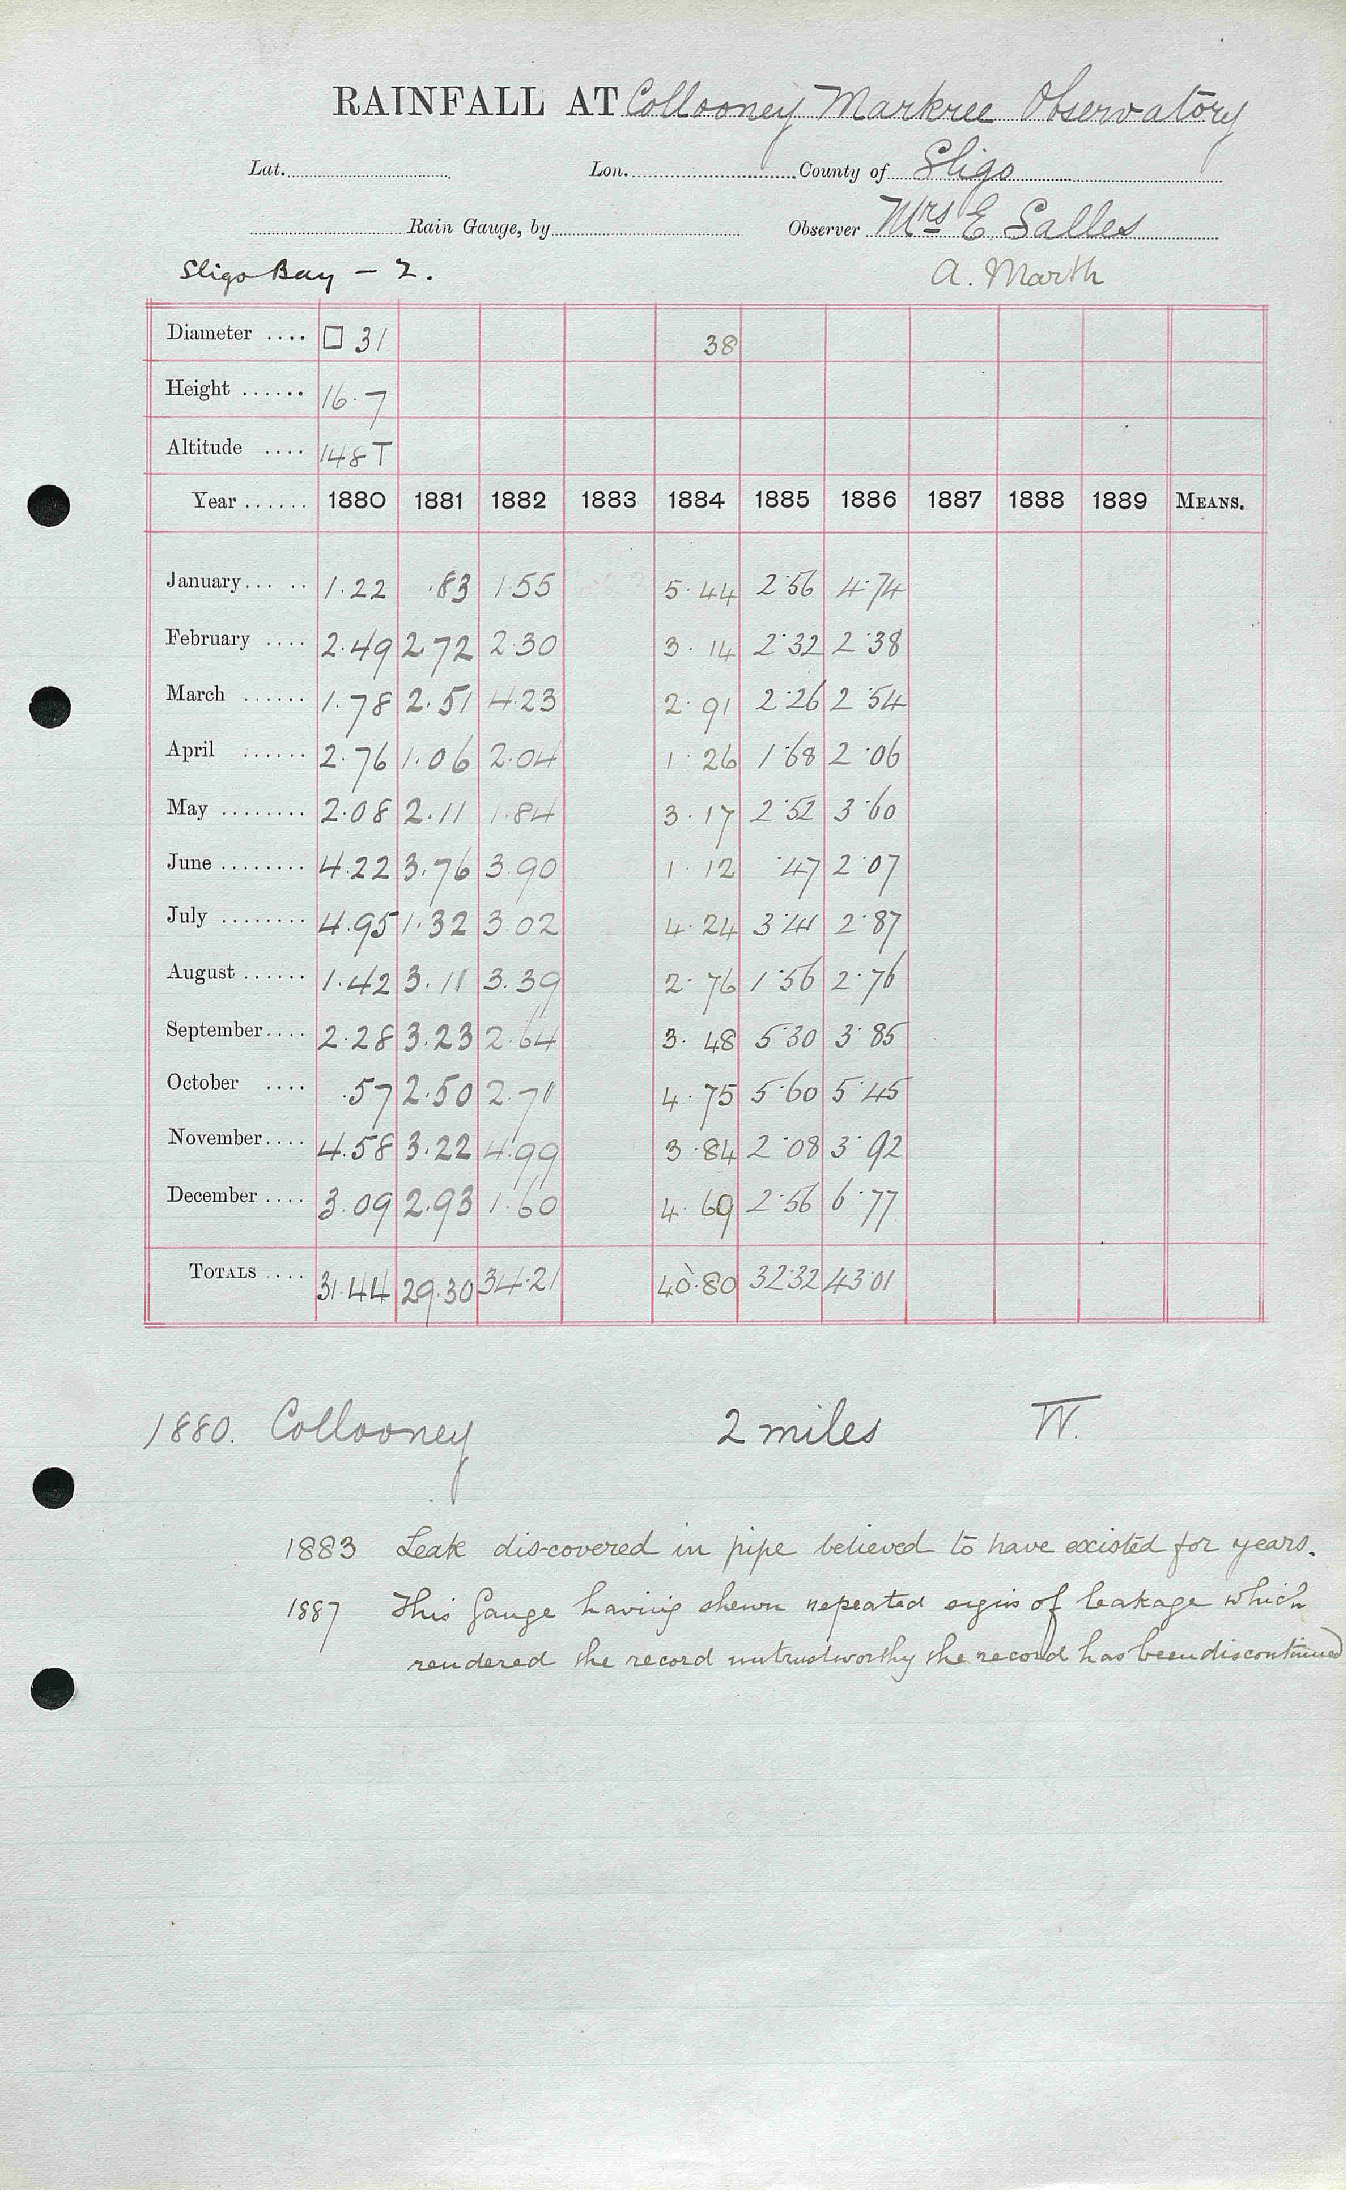 RAINFALL AT Collooney Markree Observatory
Lat. Lon. County of Sligo
Rain Gauge, by Observer Mrs E. Salles
Sligo Bay – 2. A. Marth
Diameter .... □ 31 38
Height ...... 16.7
Altitude .... 148 T
Year ...... 1880 1881 1882 1883 1884 1885 1886 1887 1888 1889 MEANS.
January ..... 1.22 .83 1.55 5.44 2.56 4.74
February .... 2.49 2.72 2.30 3.14 2.32 2.38
March ...... 1.78 2.51 4.23 2.91 2.26 2.54
April ...... 2.76 1.06 2.04 1.26 1.68 2.06
May ........ 2.08 2.11 1.84 3.17 2.52 3.60
June ........ 4.22 3.76 3.90 1.12 .47 2.07
July ........ 4.95 1.32 3.02 4.24 3.41 2.87
August ...... 1.42 3.11 3.39 2.76 1.56 2.76
September .... 2.28 3.23 2.64 3.48 5.30 3.85
October .... .57 2.50 2.71 4.75 5.60 5.45
November .... 4.58 3.22 4.99 3.84 2.08 3.92
December .... 3.09 2.93 1.60 4.69 2.56 6.77
TOTALS .... 31.44 29.30 34.21 40.80 32.32 43.01
1880. Collooney 2 miles W.
1883 Leak discovered in pipe believed to have existed for years.
1887 This Gauge having shewn repeated signs of leakage which
rendered the record untrustworthy the record has been discontinued